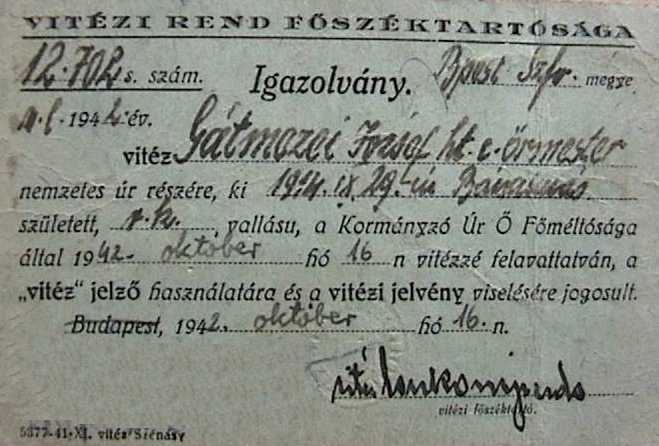 VITÉZI REND FŐSZÉKTARTÓSÁGA
12.702 s. szám. Igazolvány. Bpest Szfv. megye
1942. év.
vitéz Gátmezei József ht. e. őrmester
nemzetes úr részére, ki 1914. IX. 29-én
született, r. k. vallásu, a Kormányzó Úr Ő Főméltósága
által 1942. október hó 16 n vitézzé felavattatván, a
„vitéz” jelző használatára és a vitézi jelvény viselésére jogosult.
Budapest, 1942. október hó 16. n.
vitéz
vitézi főszéktartó.
5377-41-XI. vitéz Szénásy